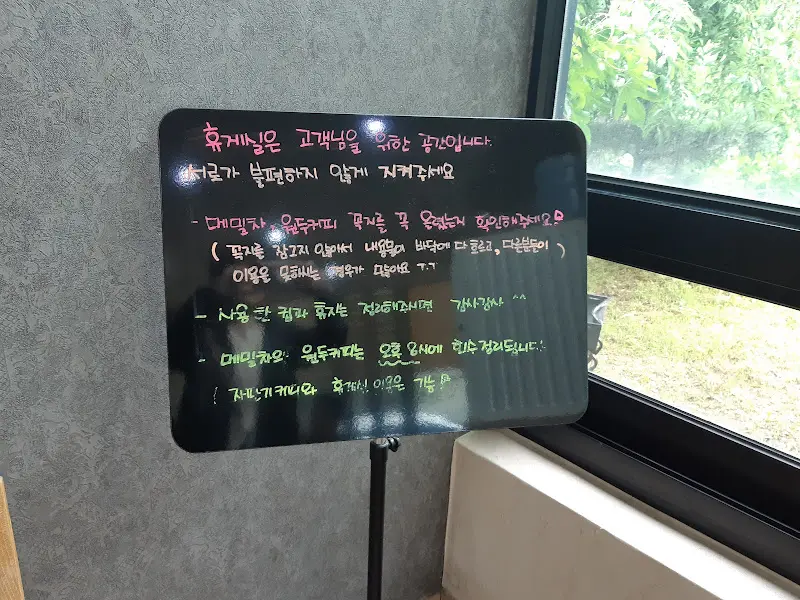 휴게실은 고객님을 위한 공간입니다.
서로가 불편하지 않게 지켜주세요
- 메밀차, 원두커피 꼭지를 꼭 올렸는지 확인해주세요
( 꼭지를 잠그지 않아서 내용물이 바닥에 다 흐르고, 다른분들이
이용을 못하시는 경우가 많아요 ㅜ.ㅜ )
- 사용한 컵과 휴지는 정리해주시면 감사감사 ^^
- 메밀차와 원두커피는 오후 8시에 회수정리됩니다.
( 자판기커피와 휴게실 이용은 가능!